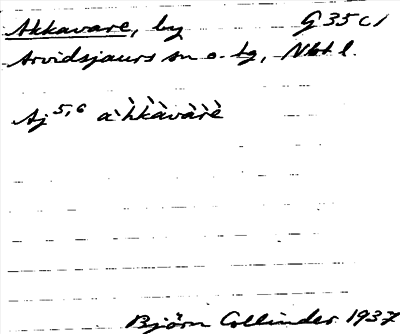 Akkavare, by G 35 c 1
Arvidsjaurs sn o. tg, Nbt l.
Aj 5,6 a`hkàvàrè
Björn Collinder 1937